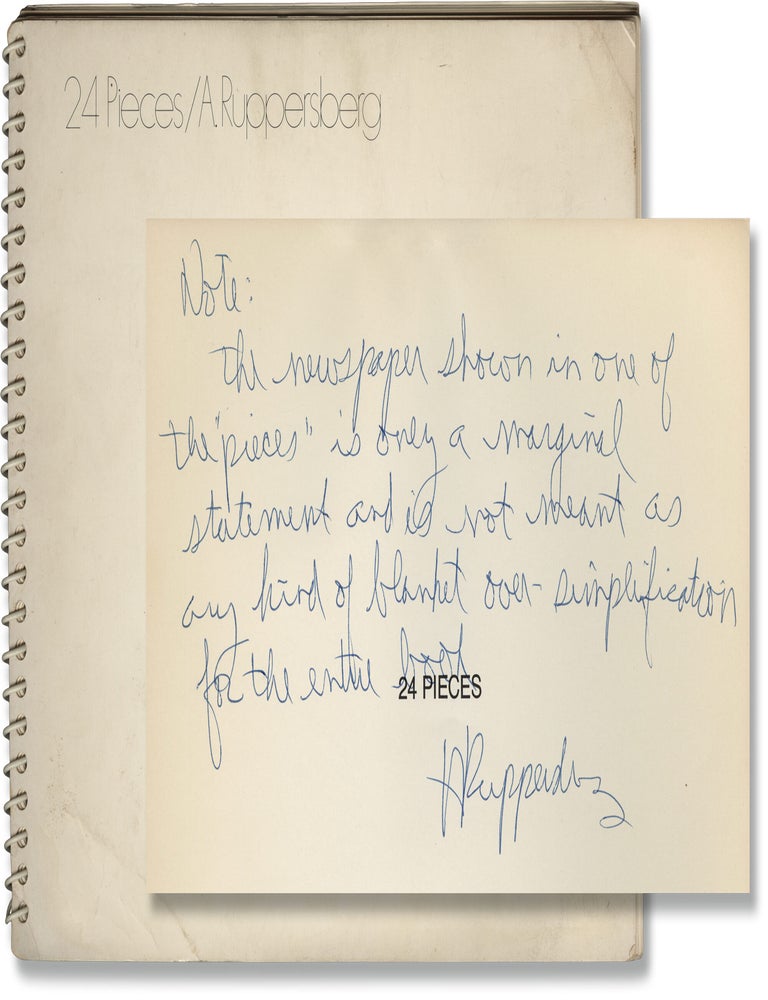 24 Pieces/A.Ruppersberg
Note:
the newspaper shown in one of
the "pieces" is only a marginal
statement and is not meant as
any kind of blanket over-simplification
for the entire book
24 PIECES
A Ruppersberg